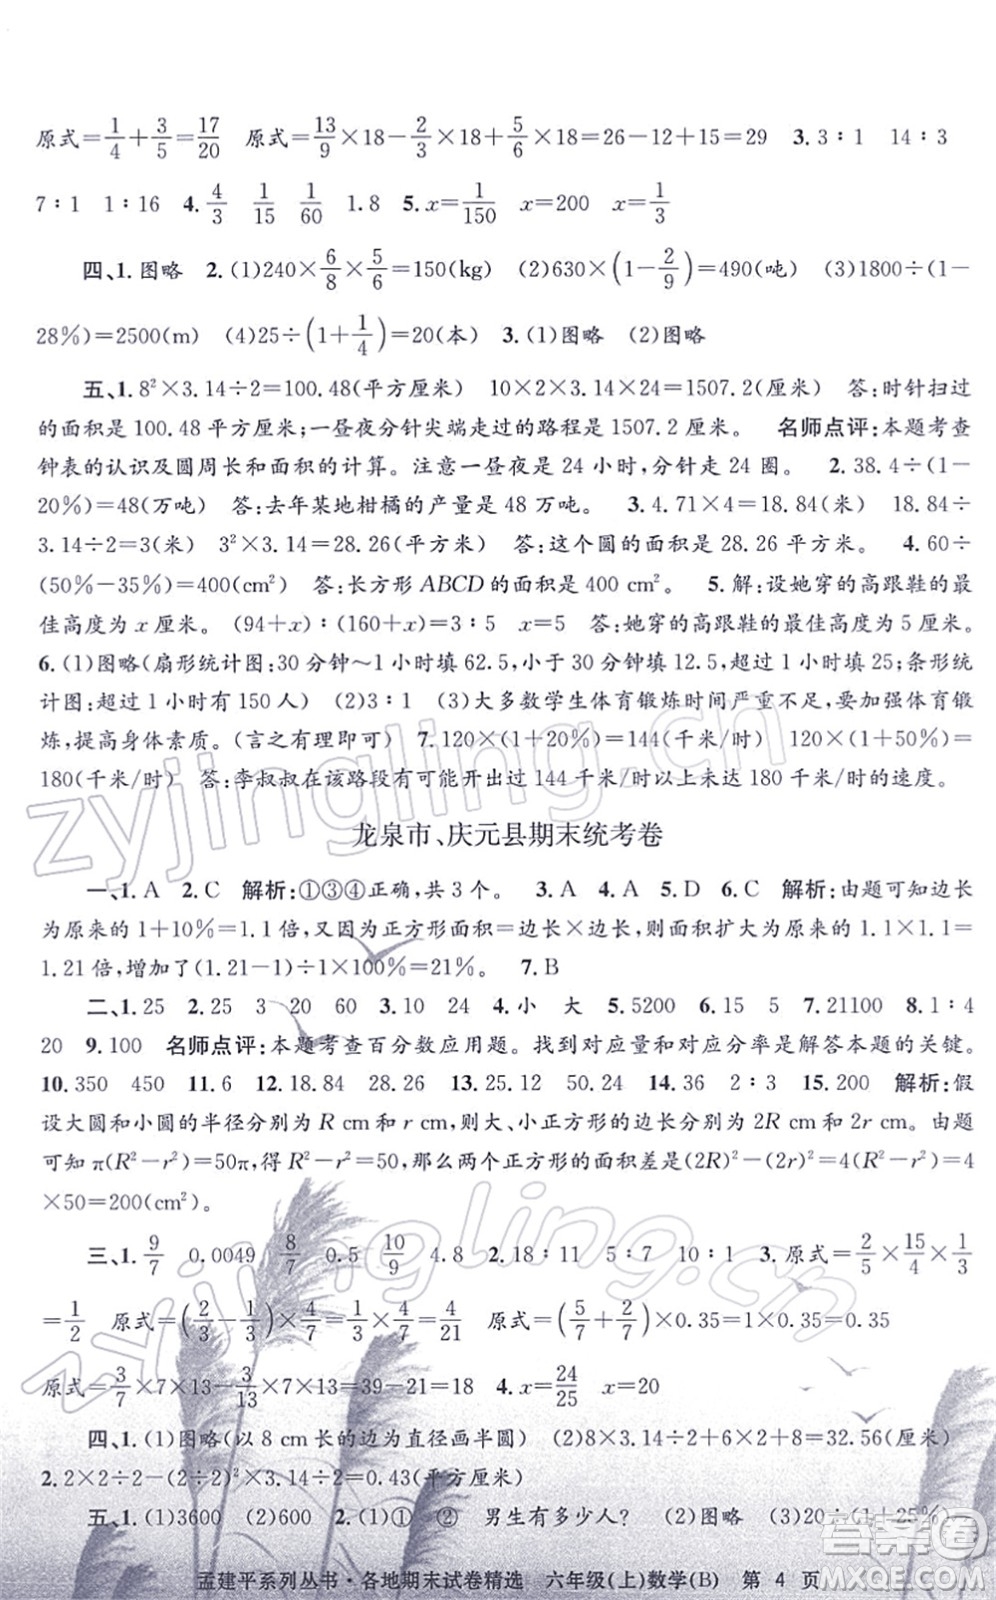 原式=1/4+3/5=17/20 原式=13/9×18-2/3×18+5/6×18=26-12+15=29 3.3∶1 14∶3
7∶1 1∶16 4.4/3 1/15 1/60 1.8 5.x=1/150 x=200 x=1/3
四、1.图略 2.(1)240×6/8×5/6=150(kg) (2)630×(1-2/9)=490(吨) (3)1800÷(1-
28%)=2500(m) (4)25÷(1+1/4)=20(本) 3.(1)图略 (2)图略
五、1.8²×3.14÷2=100.48(平方厘米) 10×2×3.14×24=1507.2(厘米) 答:时针扫过
的面积是 100.48 平方厘米;一昼夜分针尖端走过的路程是 1507.2 厘米。 名师点评:本题考查
钟表的认识及圆周长和面积的计算。注意一昼夜是 24 小时,分针走 24 圈。 2.38.4÷(1-
20%)=48(万吨) 答:去年某地柑橘的产量是 48 万吨。 3.4.71×4=18.84(米) 18.84÷
3.14÷2=3(米) 3²×3.14=28.26(平方米) 答:这个圆的面积是 28.26 平方米。 4.60÷
(50%-35%)=400(cm²) 答:长方形 ABCD 的面积是 400 cm²。 5.解:设她穿的高跟鞋的最
佳高度为 x 厘米。 (94+x)∶(160+x)=3∶5 x=5 答:她穿的高跟鞋的最佳高度为 5 厘米。
6.(1)图略(扇形统计图:30 分钟~1 小时填 62.5,小于 30 分钟填 12.5,超过 1 小时填 25;条形统
计图:超过 1 小时有 150 人) (2)3∶1 (3)大多数学生体育锻炼时间严重不足,要加强体育锻
炼,提高身体素质。(言之有理即可) 7.120×(1+20%)=144(千米/时) 120×(1+50%)=
180(千米/时) 答:李叔叔在该路段有可能开出过 144 千米/时以上未达 180 千米/时的速度。
龙泉市、庆元县期末统考卷
一、1.A 2.C 解析:①③④正确,共 3 个。 3.A 4.A 5.D 6.C 解析:由题可知边长
为原来的 1+10%=1.1 倍,又因为正方形面积=边长×边长,则面积扩大为原来的 1.1×1.1=
1.21 倍,增加了(1.21-1)÷1×100%=21%。 7.B
二、1.25 2.25 3 20 60 3.10 24 4.小 大 5.5200 6.15 5 7.21100 8.1∶4
20 9.100 名师点评:本题考查百分数应用题。找到对应量和对应分率是解答本题的关键。
10.350 450 11.6 12.18.84 28.26 13.25.12 50.24 14.36 2∶3 15.200 解析:假
设大圆和小圆的半径分别为 R cm 和 r cm,则大、小正方形的边长分别为 2R cm 和 2r cm。由题
可知 π(R²-r²)=50π,得 R²-r²=50,那么两个正方形的面积差是(2R)²-(2r)²=4(R²-r²)=4
×50=200(cm²)。
三、1.9/7 0.0049 8/7 0.5 10/9 4.8 2.18∶11 5∶7 10∶1 3.原式=2/5×15/4×1/3
=1/2 原式=(2/3-1/3)×4/7=1/3×4/7=4/21 原式=(5/7+2/7)×0.35=1×0.35=0.35
原式=3/7×7×13-3/13×7×13=39-21=18 4.x=24/25 x=20
四、1.(1)图略(以 8 cm 长的边为直径画半圆) (2)8×3.14÷2+6×2+8=32.56(厘米)
2.2×2÷2-(2÷2)²×3.14÷2=0.43(平方厘米)
五、1.(1)3600 (2)600 2.(1)① ② 男生有多少人? (2)图略 (3)20÷(1+25%)
孟建平系列丛书·各地期末试卷精选 六年级(上)数学(B) 第 4 页
zyjingling.cn
zyjingling.cn
答案圈